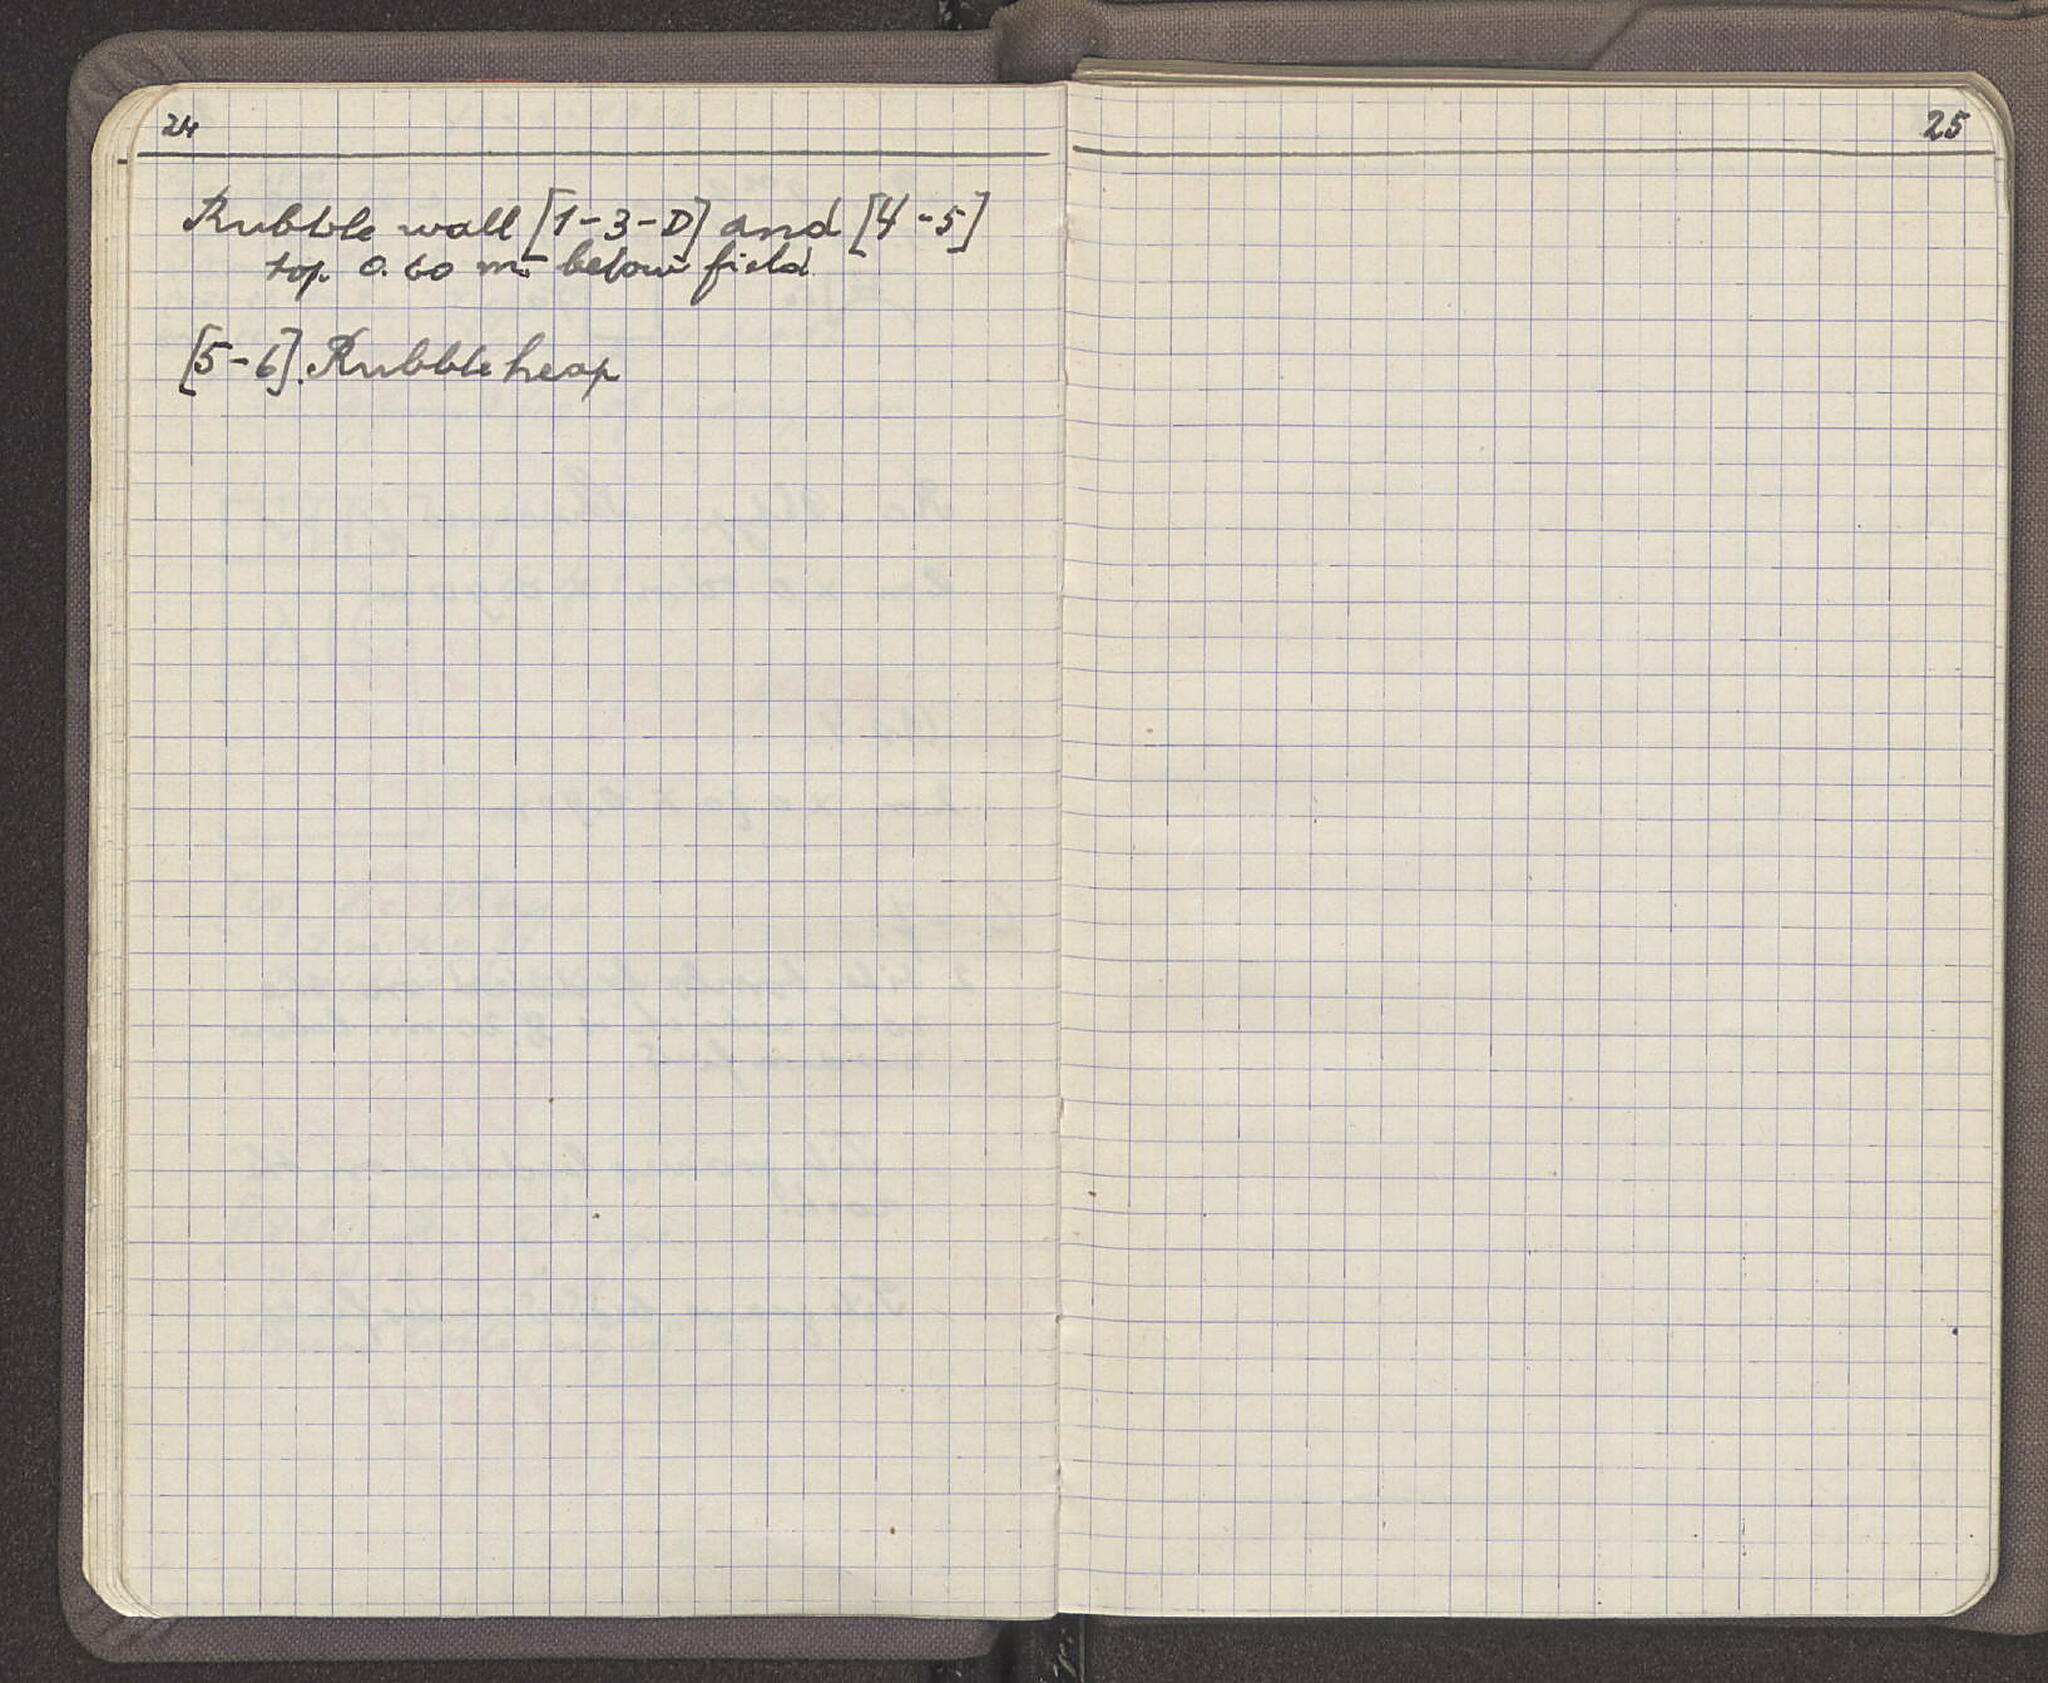 24
Rubble wall [1-3-D] and [4-5]
top 0.60 m. below field
[5-6]. Rubble heap
25